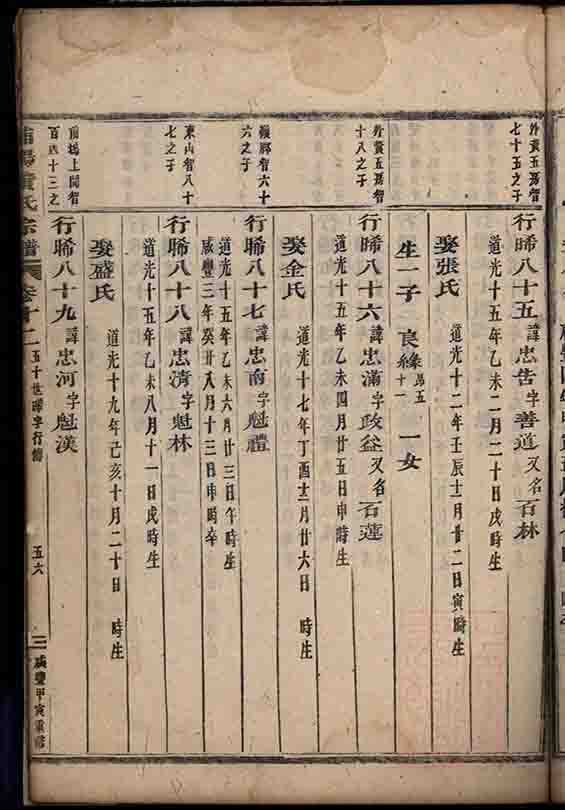 外黃五房智
七十五之子
行晞八十五 諱忠告 字善道 又名百林
道光十五年乙未二月二十日戌時生
娶張氏 道光十二年壬辰十二月廿二日寅時生
生一子 良緣 一女
外黃五房智
十八之子
行晞八十六 諱忠滿 字政益 又名百蓮
道光十五年乙未四月廿五日申時生
娶金氏 道光十七年丁酉十二月廿六日 時生
智六十
六之子
行晞八十七 諱忠南 字魁禮
道光十五年乙未六月廿三日午時生
咸豐三年癸丑八月十三日申時卒
東山智八十
七之子
行晞八十八 諱忠清 字魁林
道光十五年乙未八月十一日戌時生
娶盛氏 道光十九年己亥十月二十日 時生
上間智
百四十三之
行晞八十九 諱忠河 字魁漢
黃氏宗譜 卷十二 五十世晞字行傳 五六 咸豐甲寅重修